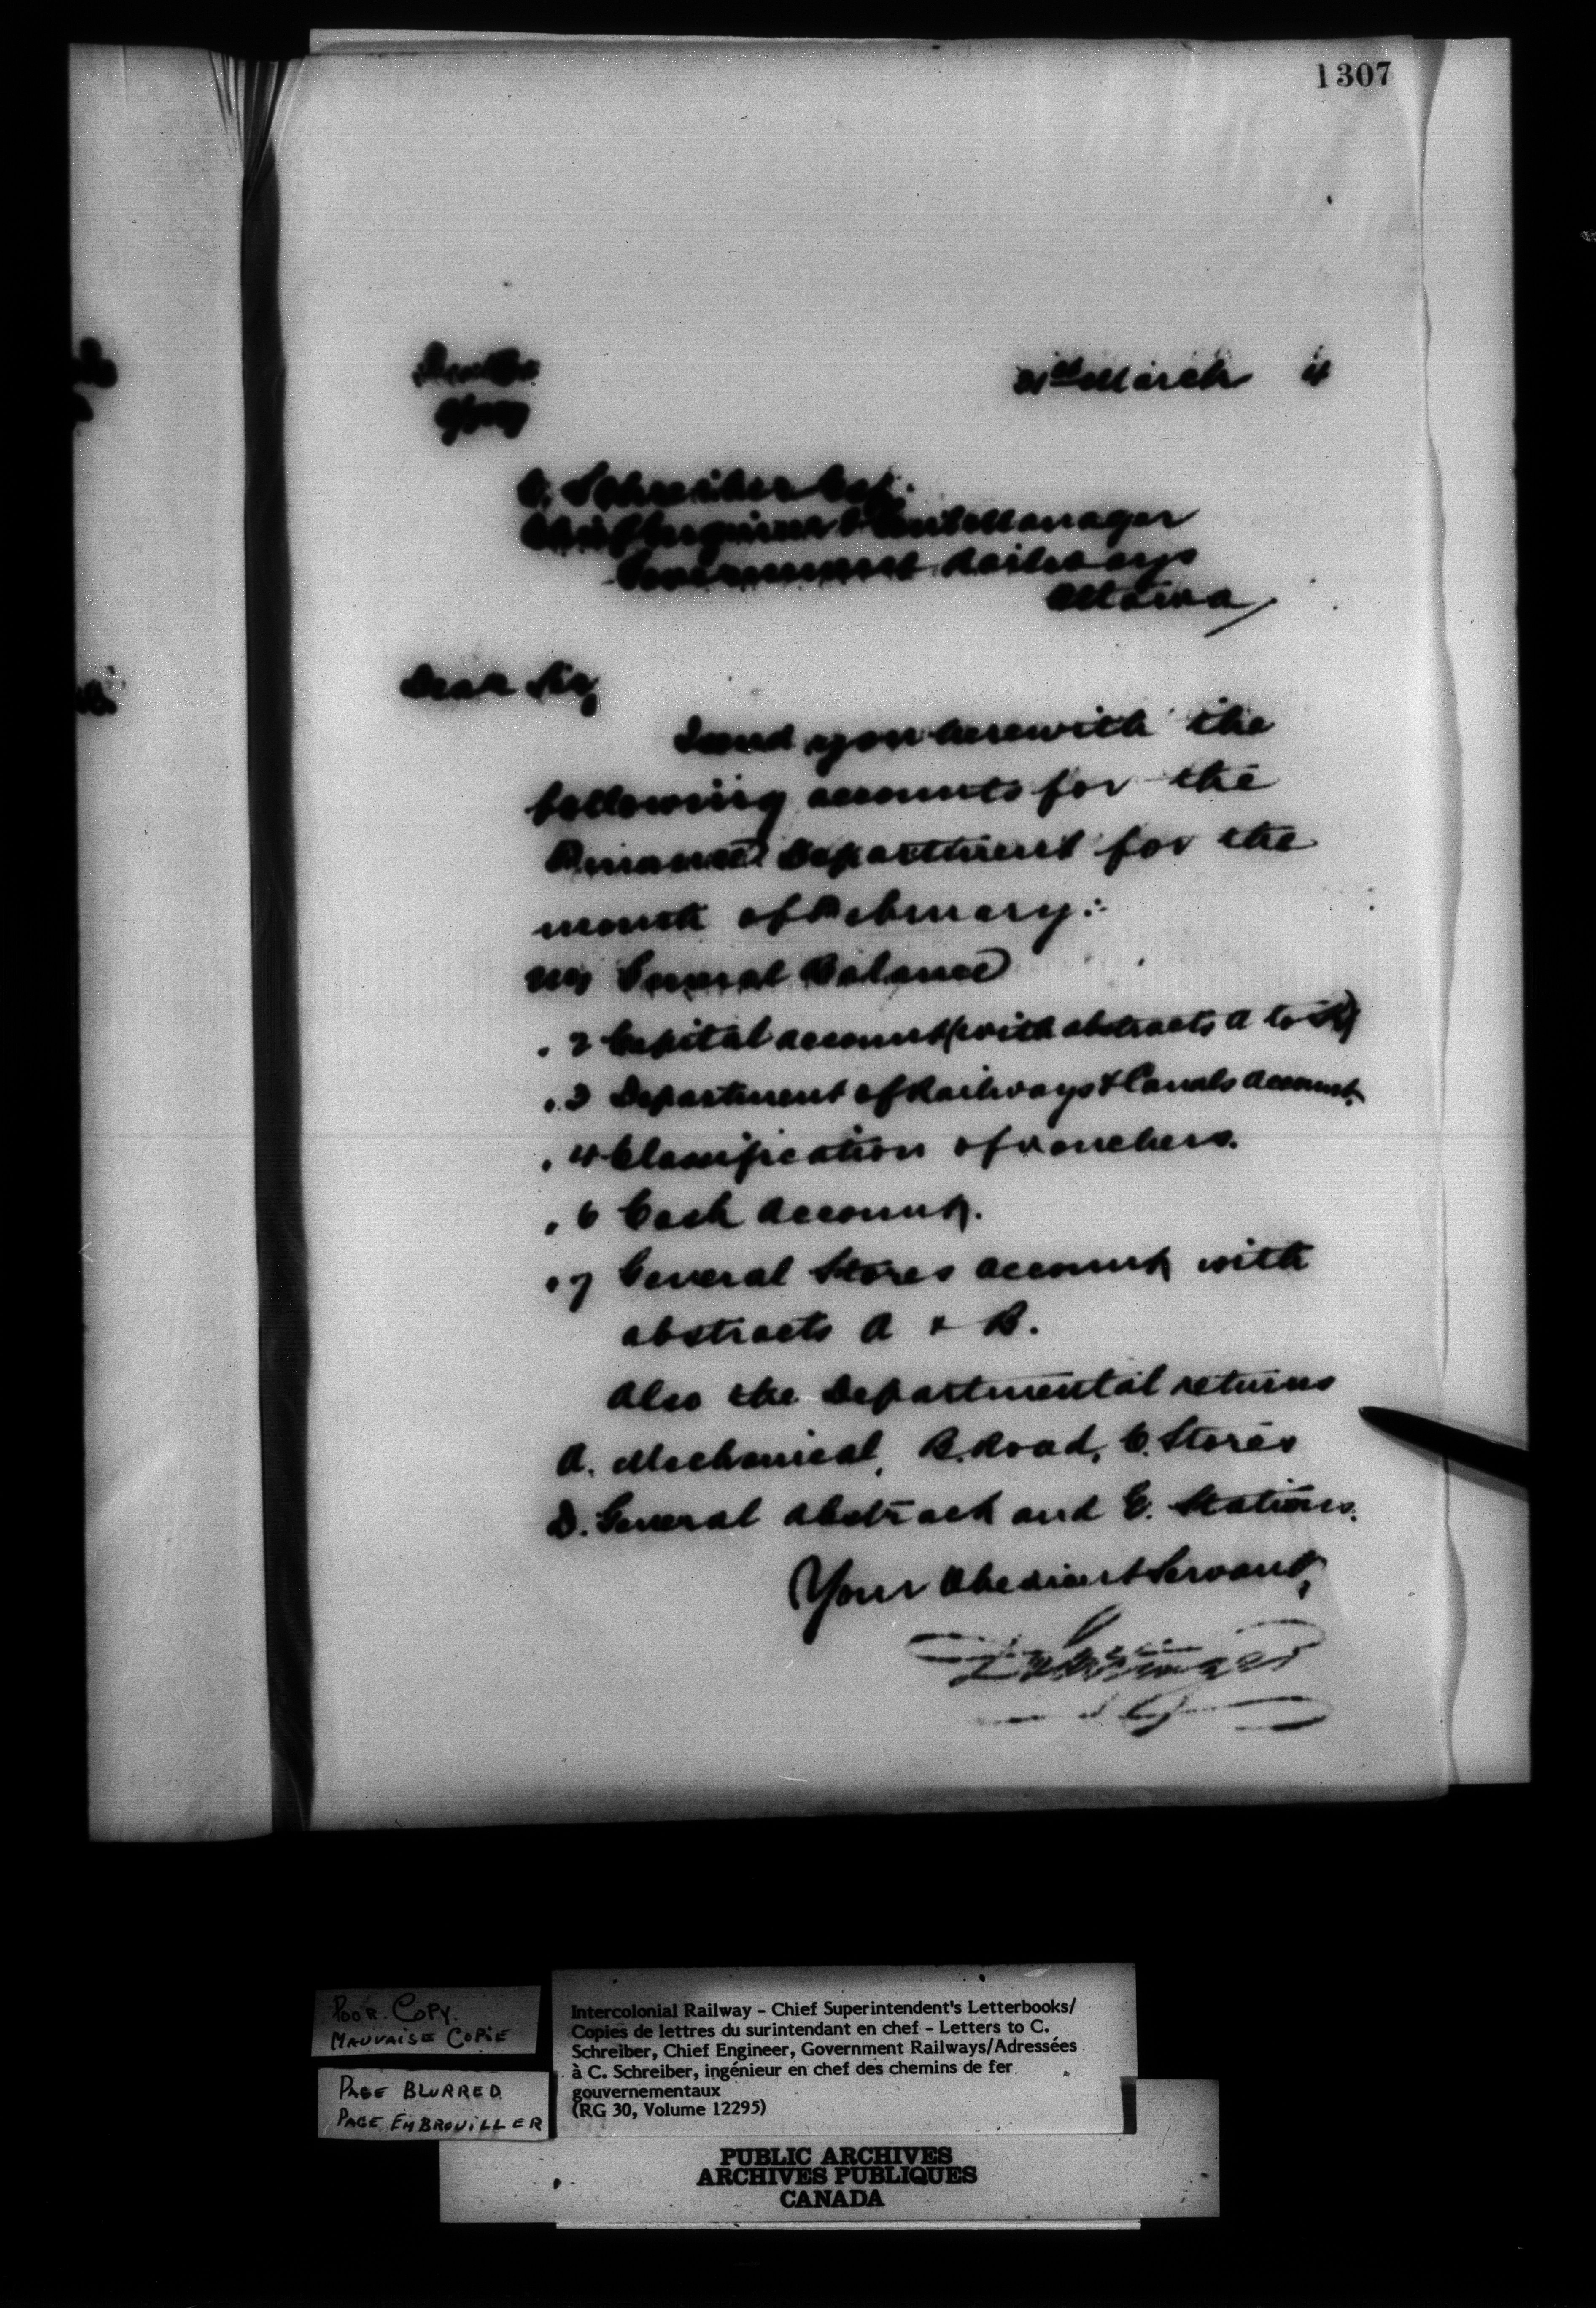 1307
31st March 4
C. Schreiber Esq.
Chief Engineer & Genl Manager
Government Railways
Ottawa
Dear Sir,
I send you herewith the
following accounts for the
Finance Department for the
month of February:-
No 1 General Balance
" 2 Capital account (with abstracts A to
" 3 Department of Railways & Canals account.
" 4 Classification of vouchers.
" 6 Cash account.
" 7 General Stores account with
abstracts A & B.
Also the Departmental returns
A. Mechanical, B. Road, C. Stores
D. General Abstract and E. Stations.
Your Obedient Servant,
POOR. COPY.
MAUVAISE COPIE
PAGE BLURRED
PAGE EMBROUILLER
Intercolonial Railway - Chief Superintendent's Letterbooks/
Copies de lettres du surintendant en chef - Letters to C.
Schreiber, Chief Engineer, Government Railways/Adressées
à C. Schreiber, ingénieur en chef des chemins de fer
gouvernementaux
(RG 30, Volume 12295)
PUBLIC ARCHIVES
ARCHIVES PUBLIQUES
CANADA